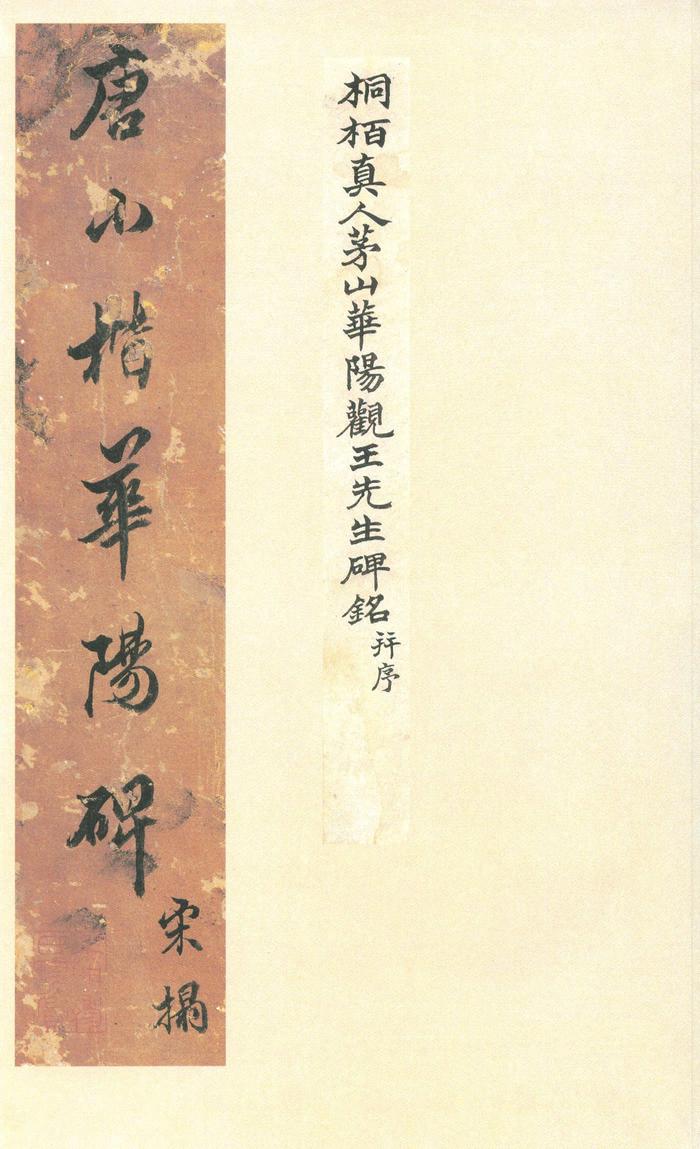 桐栢真人茅山華陽觀王先生碑銘
并序
唐小楷華陽碑
宋搨